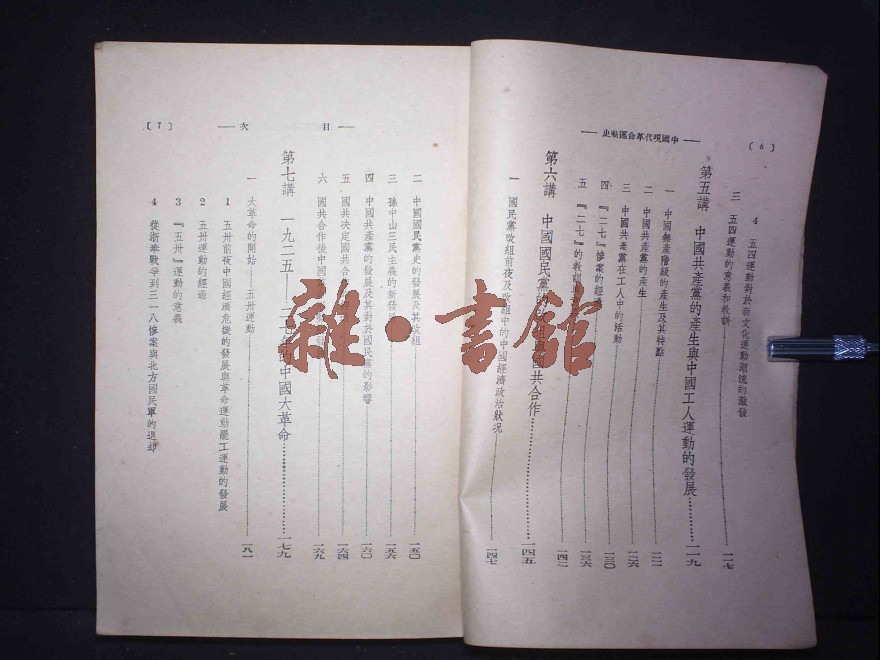 〔6〕
中國現代革命運動史
4 五四運動對於新文化運動潮流的激發
三 五四運動的意義和教訓 一一七
第五講 中國共產黨的產生與中國工人運動的發展 一一九
一 中國無產階級的產生及其特點
二 中國共產黨的產生
三 中國共產黨在工人中的活動 一二六
四 『二七』慘案的經過 一三〇
五 『二七』的教訓 一三六
一四二
第六講 中國國民黨的改組與國共合作 一四五
一 國民黨改組前夜及改組中的中國經濟政治狀況 一四七
目 次
〔7〕
二 中國國民黨史的發展及其改組 一五〇
三 孫中山三民主義的新發 一五六
四 中國共產黨的發展及其對於國民黨的影響 一六〇
五 國共決定國共合 一六四
六 國共合作後中國 一六九
第七講 一九二五——二七年的中國大革命 一七九
一 大革命的開始——五卅運動 一八一
1 五卅前夜中國經濟危機的發展與革命運動罷工運動的發展
2 五卅運動的經過
3 『五卅』運動的意義
4 從浙奉戰爭到三一八慘案與北方國民軍的退却
雜·書館